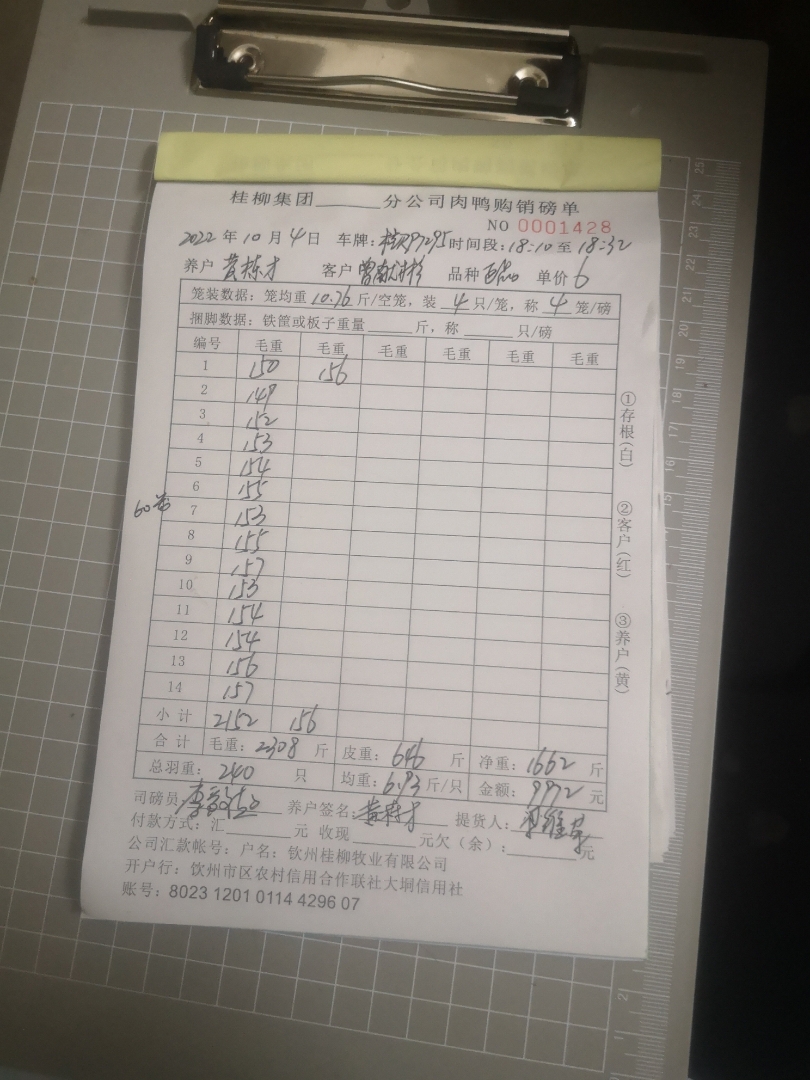 桂柳集团______分公司肉鸭购销磅单
NO 0001428
2022年10月4日 车牌: 时间段:18:10至18:32
养户 黄栋才 客户 品种 单价6
笼装数据:笼均重10.76斤/空笼,装4只/笼,称4笼/磅
捆脚数据:铁筐或板子重量______斤,称______只/磅
编号 毛重 毛重 毛重 毛重 毛重 毛重
1 150 156
2 149
3 152
4 153
5 154
6 155
60笼
7 153
8 155
9 157
10 153
11 154
12 154
13 156
14 157
小计 2152 156
合计 毛重:2308斤 皮重:646斤 净重:1662斤
总羽重:240只 均重:6.93斤/只 金额:9972元
司磅员: 养户签名:黄栋才 提货人:
付款方式:汇______元 收现______元欠(余):______元
公司汇款帐号:户名:钦州桂柳牧业有限公司
开户行:钦州市区农村信用合作联社大垌信用社
账号:8023 1201 0114 4296 07
①存根(白)
②客户(红)
③养户(黄)